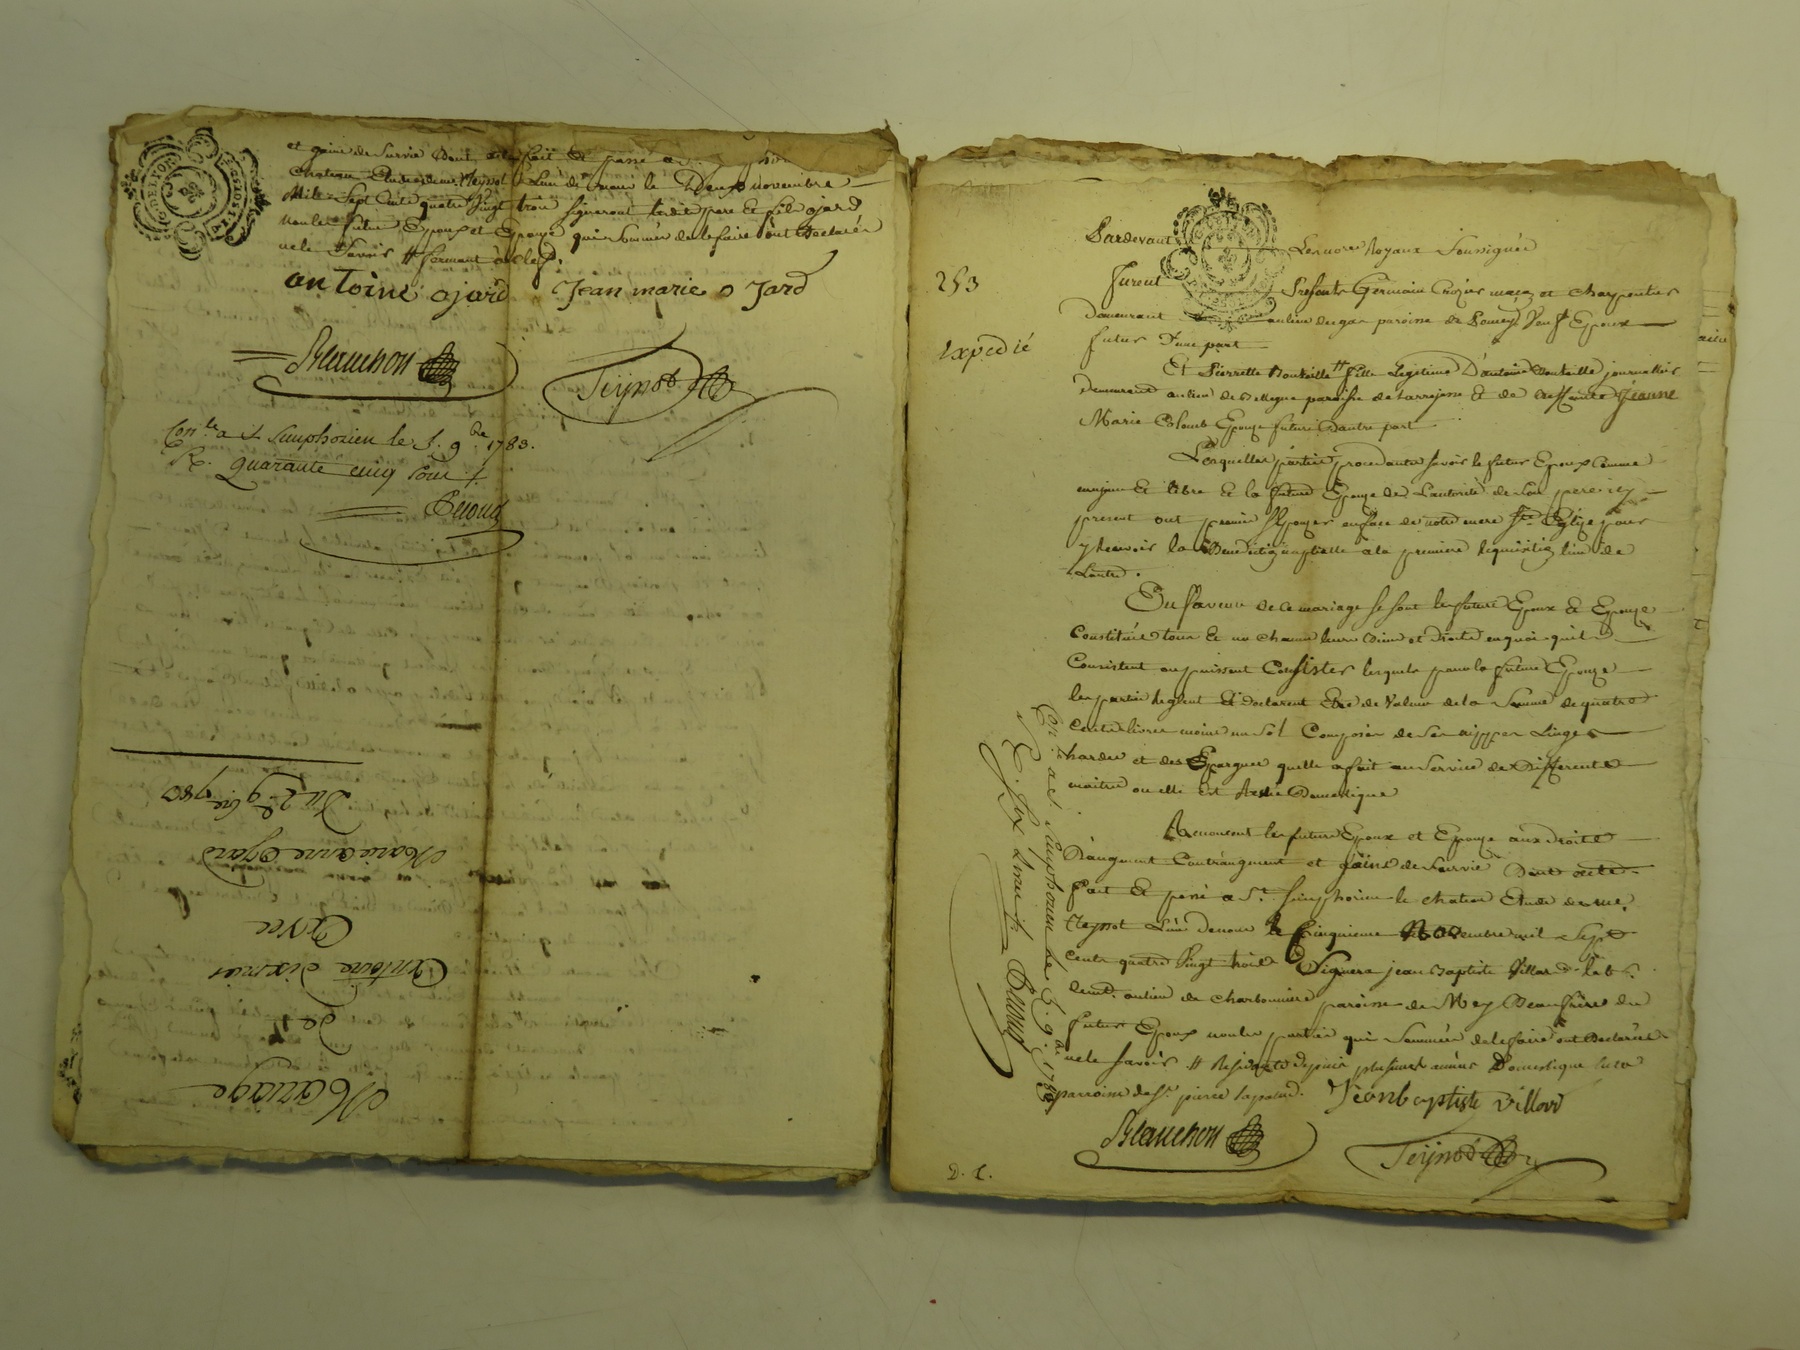 et gains de Survie Dont acte fait & passé a S.
Chateau Etude de me. Teynot L'un de nous le Deux novembre
Mil Sept Cents quatre Vingt trois Signeront lesdits pere & fils ojard
non les futurs Epoux et Epouse qui Sommés de le faire ont Declarés
ne le Savoir
antoine ojard Jean marie o Jard
Blanchon Teynot
Con.lé a St Simphorien le 5. 9bre 1783.
R. quarante cinq sous
Mariage
de
Antoine
Avec
Marie anne Ojard
Du 2e. 9bre 1783
253
expedié
Pardevant Les no.res Royaux Soussignés
furent Presents Germain Crozier maçon et Charpentier
demeurant au lieu du paroisse de Pomey Veuf Epoux
futur D'une part
Et Pierrette Bouteille fille Legitime D'antoine Bouteille journallier
demeurant au lieu de paroisse de Larrajasse & de deffunte Jeanne
Marie Colomb Epouse future D'autre part
Lesquelles parties procedantes savoir le futur Epoux Comme
majeur & libre & la future Epouse de L'autorité de Son pere icy
present ont promis s'Epouser en face de notre mere Ste. Eglise pour
y recevoir la Benediction nuptialle a la premiere requisition L'un de
L'autre.
En faveur de ce mariage se sont les futurs Epoux & Epouse
Constitués tous & un chacun leurs Biens et Droits en quoi qu'ils
Consistent ou puissent Consister lesquels pour la future Epouse
les parties reglent & declarent Etre de Valeur de la Somme de quatre
Cents livres moins un Sol Composée de ses nippes Linges
hardes et des Epargnes quelle a fait au service de Differents
maitres ou elle est Restée Domestique
Renoncent les futurs Epoux et Epouse aux Droits
D'augment Contraugment et gains de Survie Dont acte
Fait & passé a St. Simphorien le chateau Etude de me.
Teynot L'un de nous le Cinquieme Novembre mil Sept
Cents quatre Vingt trois Signera jean Baptiste Villard
demt. au lieu de Charbonniere paroisse de Meys Beaufrere du
futur Epoux non les parties qui Sommées de le faire ont Declarés
ne le Savoir # Residente depuis plusieurs années Domestique
parroisse de St. pierre lapalud. Jeanbaptiste villard
Blanchon Teynot
Con.lé a St. Simphorien le 5. 9bre 1783
D. C.